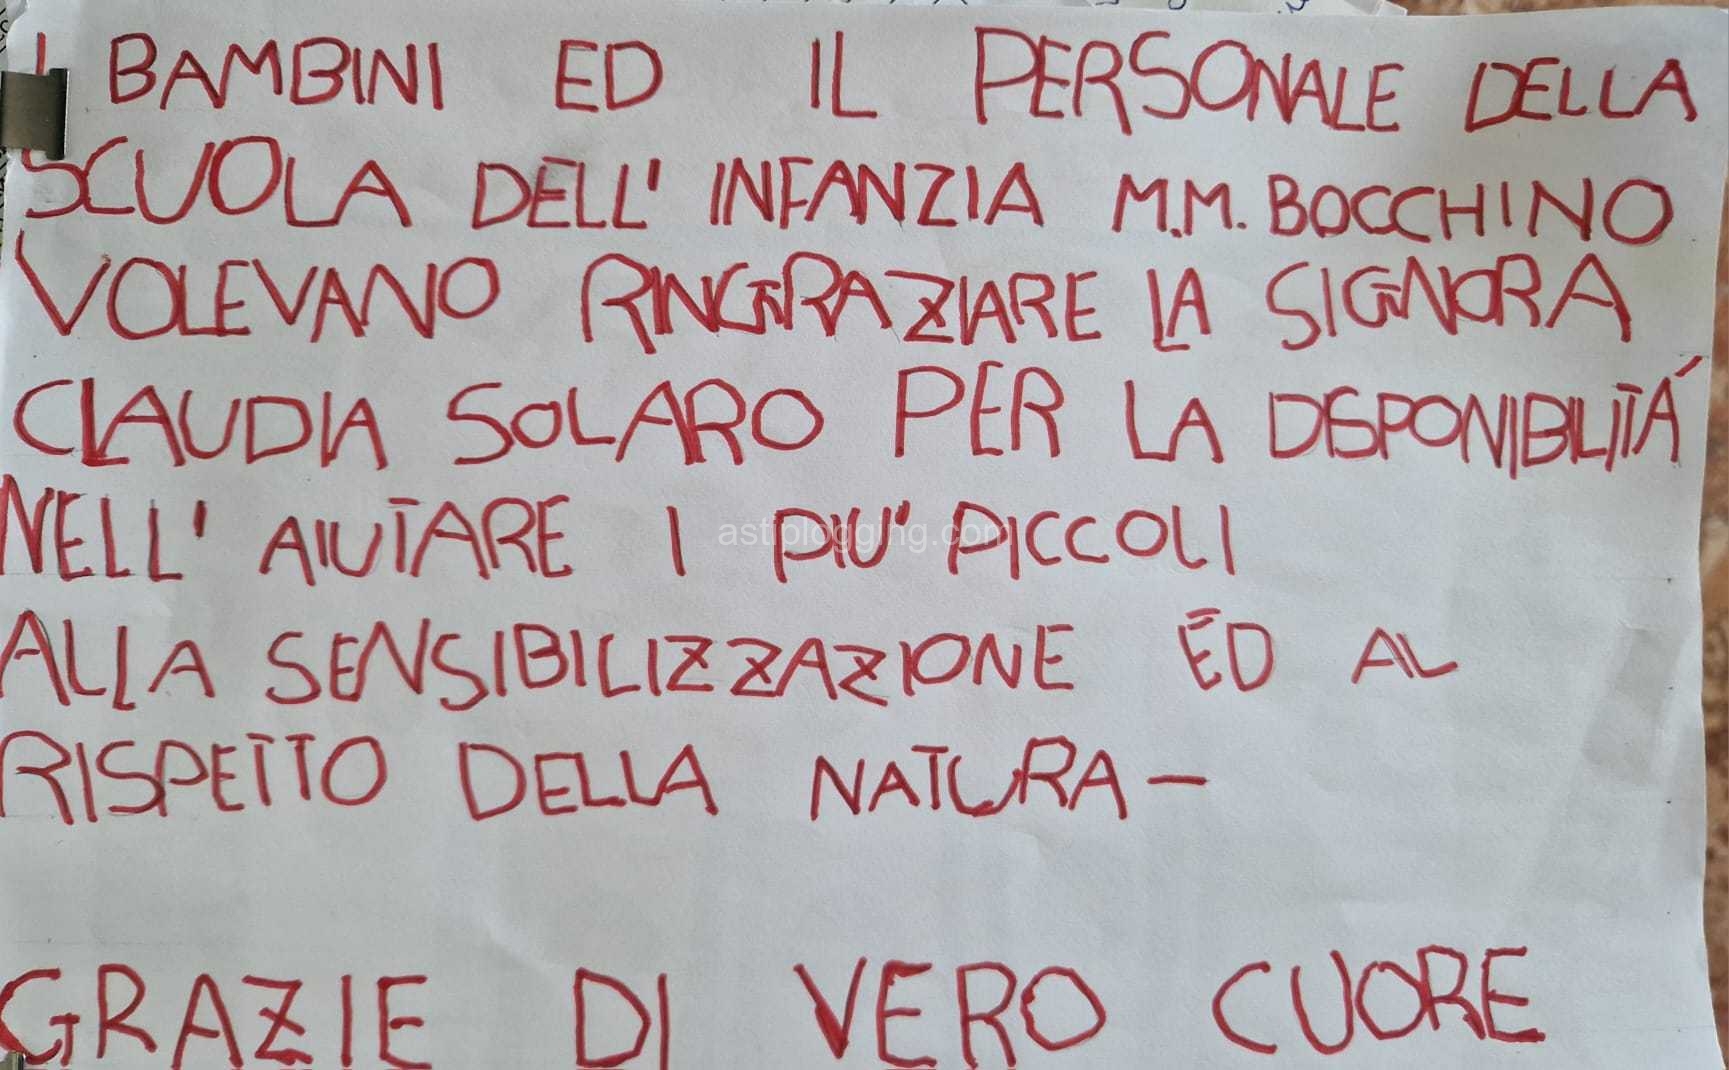 I BAMBINI ED IL PERSONALE DELLA
SCUOLA DELL' INFANZIA M.M. BOCCHINO
VOLEVANO RINGRAZIARE LA SIGNORA
CLAUDIA SOLARO PER LA DISPONIBILITÁ
NELL' AIUTARE I PIU' PICCOLI
astiplogging.com
ALLA SENSIBILIZZAZIONE ED AL
RISPETTO DELLA NATURA—
GRAZIE DI VERO CUORE